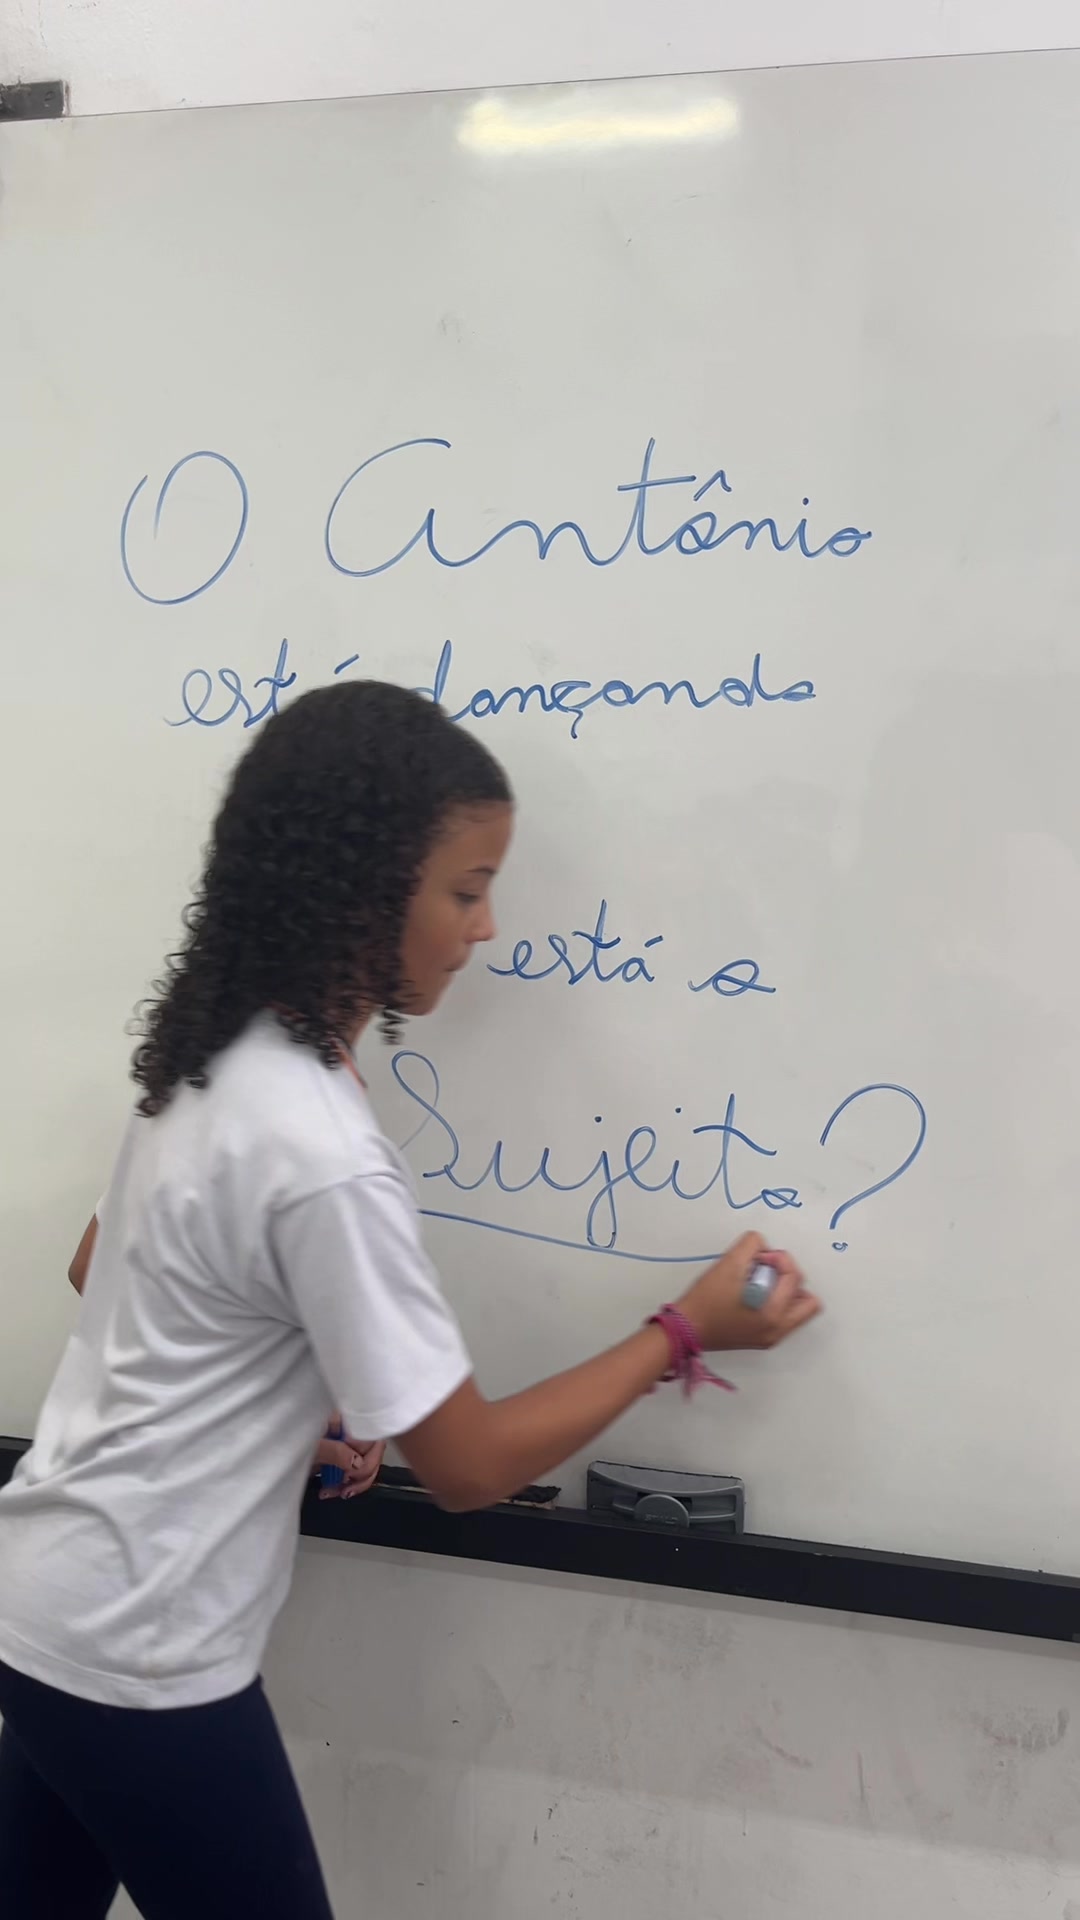 O Antônio
está dançando
está o
Sujeito?